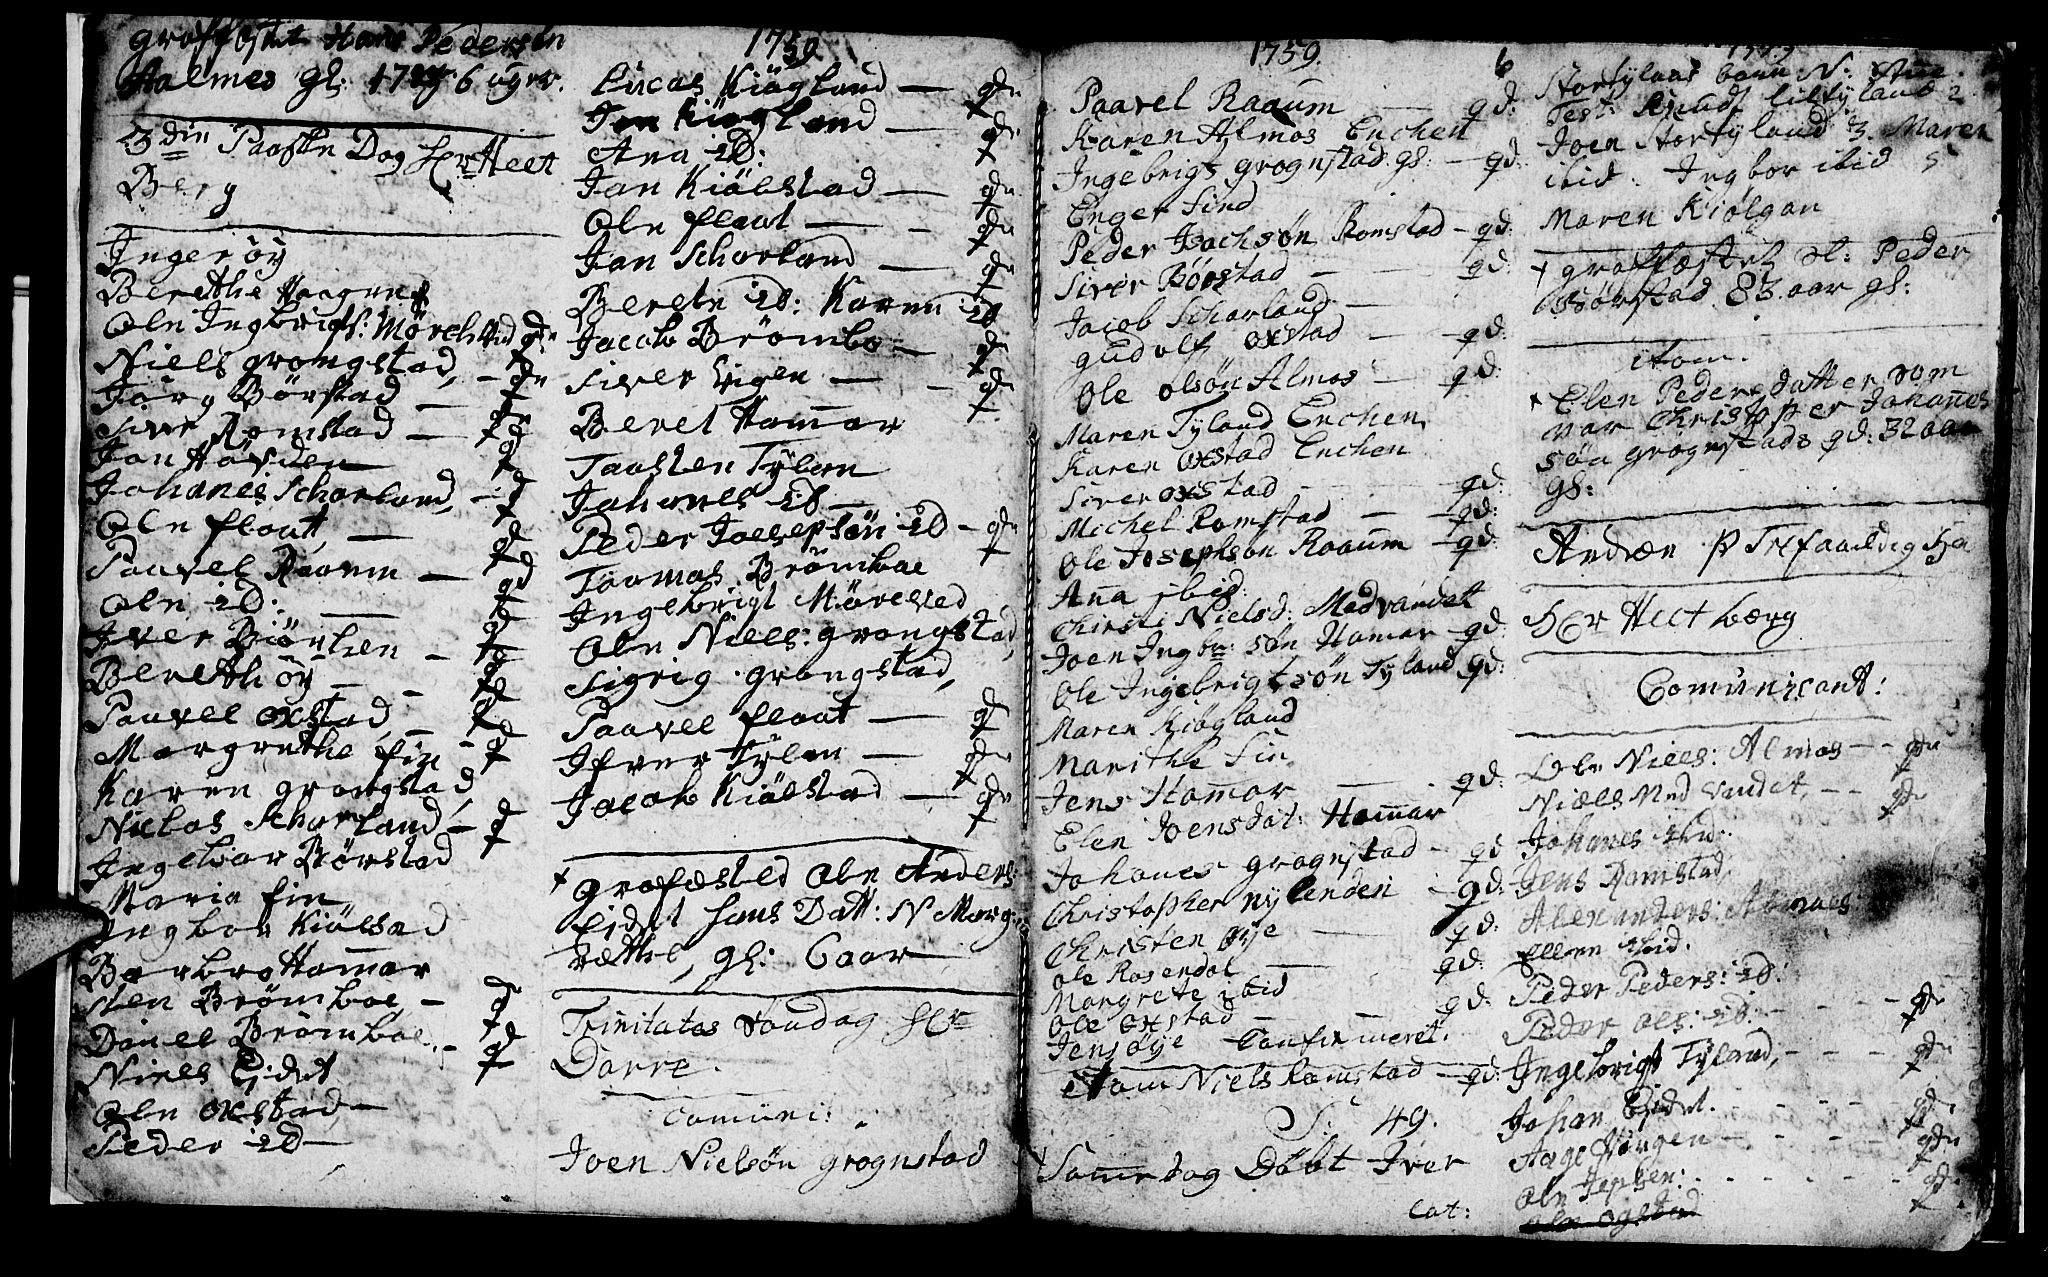 grafæstet Hans Pedersen
Aalmes gl: 6 uger.
3 die Paaske Dag Hr Heet
Berg
Inger öÿ
Berethe Haagens
Ole Ingbrigts: Mörchved qd
Niels grongstad, - qd
Jörg Börstad - qd
Siver Romstad - qd
Jon Höfden qd
Johanes Scharland, - qd
Ole flaat, - qd
Paavel Raaem - qd
Ole ID: - qd
Iver Biörken - qd
Bereth öÿ - - qd
Paavel oxstad - qd
Margrethe fin - qd
Karen grongstad
Nielas Scharland, - qd
Ingebor Börstad
Maria fin
Ingbor Kiölstad
Barbro Hamar
Sten Brömboe, - qd
Daniel Brömboe, - qd
Niels Eidet qd
Ole oxstad -
Peder ID -
1759
Lucas Kiögland - qd
Jon Kiögland - qd
Ana ID: qd
Jon Kiölstad - qd
Ole flaat - - qd
Jon Scharland - qd
Berete ID: Karen ID
Jacob Brömbo - qd
Siver Vigen - - qd
Beret Hamar
Taasten Tÿlan
Johanes ID -
Peder Joseps̈on ID - qd
Taamas Brömboe
Ingebrigt Mörkved
Ole Niels: grongstad,
Sigrig grongstad,
Paavel flaat - qd
Ifver Tÿlan - qd
Jacob Kiölstad - qd
+ grafæsted Ole Anders:
Eidet hans Datt: N Marg:
rethe, gl: 6 aar
Trinitates Söndag Hr
Darre.
Comuni:
Joen Nielsön grognstad
1759.
6
Paavel Raaum - qd:
Karen Almos Enchen
Ingebrigt grognstad gl: - qd:
Enger Find
Peder Isachsön Romstad - qd:
Siver Börstad - - qd:
Jacob Scharland -
gudolf oxstad - - qd:
Ole olsön Almos - qd:
Maren Tyland Enchen
Karen oxstad Enchen
Siver oxstad - - qd:
Michel Romstad - - qd:
Ole Josephsön Raaum - qd:
Ana ibid:
Chirsti Nielsd: Medvandet
Joen Ingbr: sön Hamar - qd:
Ole Ingebrigtsön Tyland qd:
Maren Kiögland
Marithe Fin
Jens Hamar - - qd:
Elen Joensdat: Hamar
Johanes grognstad - qd
Christopher nylenden - qd:
Christen öye - qd:
Ole Rosendal - qd:
Margrete ibid
Ole oxstad - - qd:
Jens öye Confirmeret.
item Niels Romstad - qd:
S: 49.
Same dag Döbt Iver
Cat:
1759
Stortylaas barn N: Ane.
Test: Knudt liltyland 2
Joen Stortyland 3. Maren
ibid. Ingbor ibid 5
Maren Kiölgan
+ grafæstet Ol: Peder
Börstad 83. aar gl:
item.
+ Elen Pedersdatter som
var Christopher Johanes
söa grognstads qd: 32 aar
gl:
Andræn P Trefaaldig Hæ
Her Hect bærg
Comunicant:
Ole Niels: Almos - - qd
Niæls Med Vandet, - - qd
Johanes ibid:
Jens Romstad,
Alexanders: Almaas
Ellen ibid.
Peder Peders: ID:
Peder Ols: ID: - - - qd
Ingebrigt Tyland, - - - qd
Johan Eidet. - - - qd
Aage Jörgen - - - qd
Ole Jepsen: - - - qd
Ole ogstad